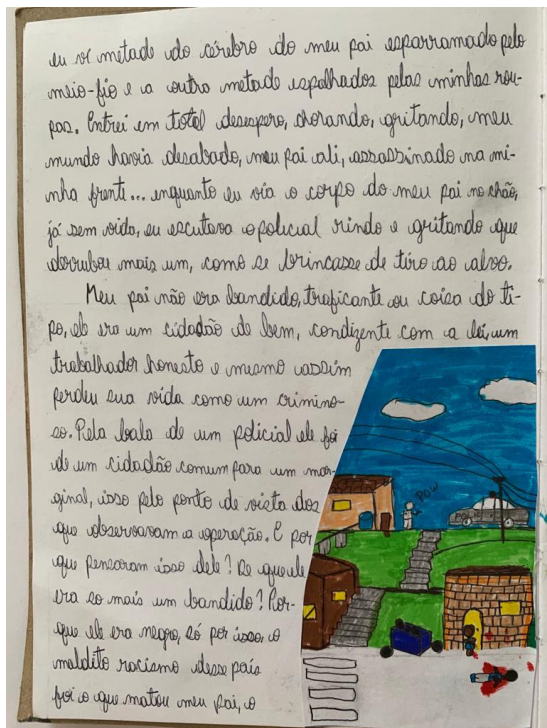 eu vi metade do cérebro do meu pai esparramado pelo
meio-fio e a outra metade espalhados pelas minhas rou-
pas. Entrei em total desespero, chorando, gritando, meu
mundo havia desabado, meu pai ali, assassinado na mi-
nha frente... enquanto eu via o corpo do meu pai no chão,
já sem vida, eu escutava o policial rindo e gritando que
derrubou mais um, como se brincasse de tiro ao alvo.
Meu pai não era bandido, traficante ou coisa do ti-
po, ele era um cidadão de bem, condizente com a lei, um
trabalhador honesto e mesmo assim
perdeu sua vida como um crimino-
so. Pela bala de um policial ele foi
de um cidadão comum para um mar-
ginal, isso pelo ponto de vista dos
que observavam a operação. E por
que pensaram isso dele? De que ele
era só mais um bandido? Por-
que ele era negro, só por isso, o
maldito racismo desse país
foi o que matou meu pai, o
POW